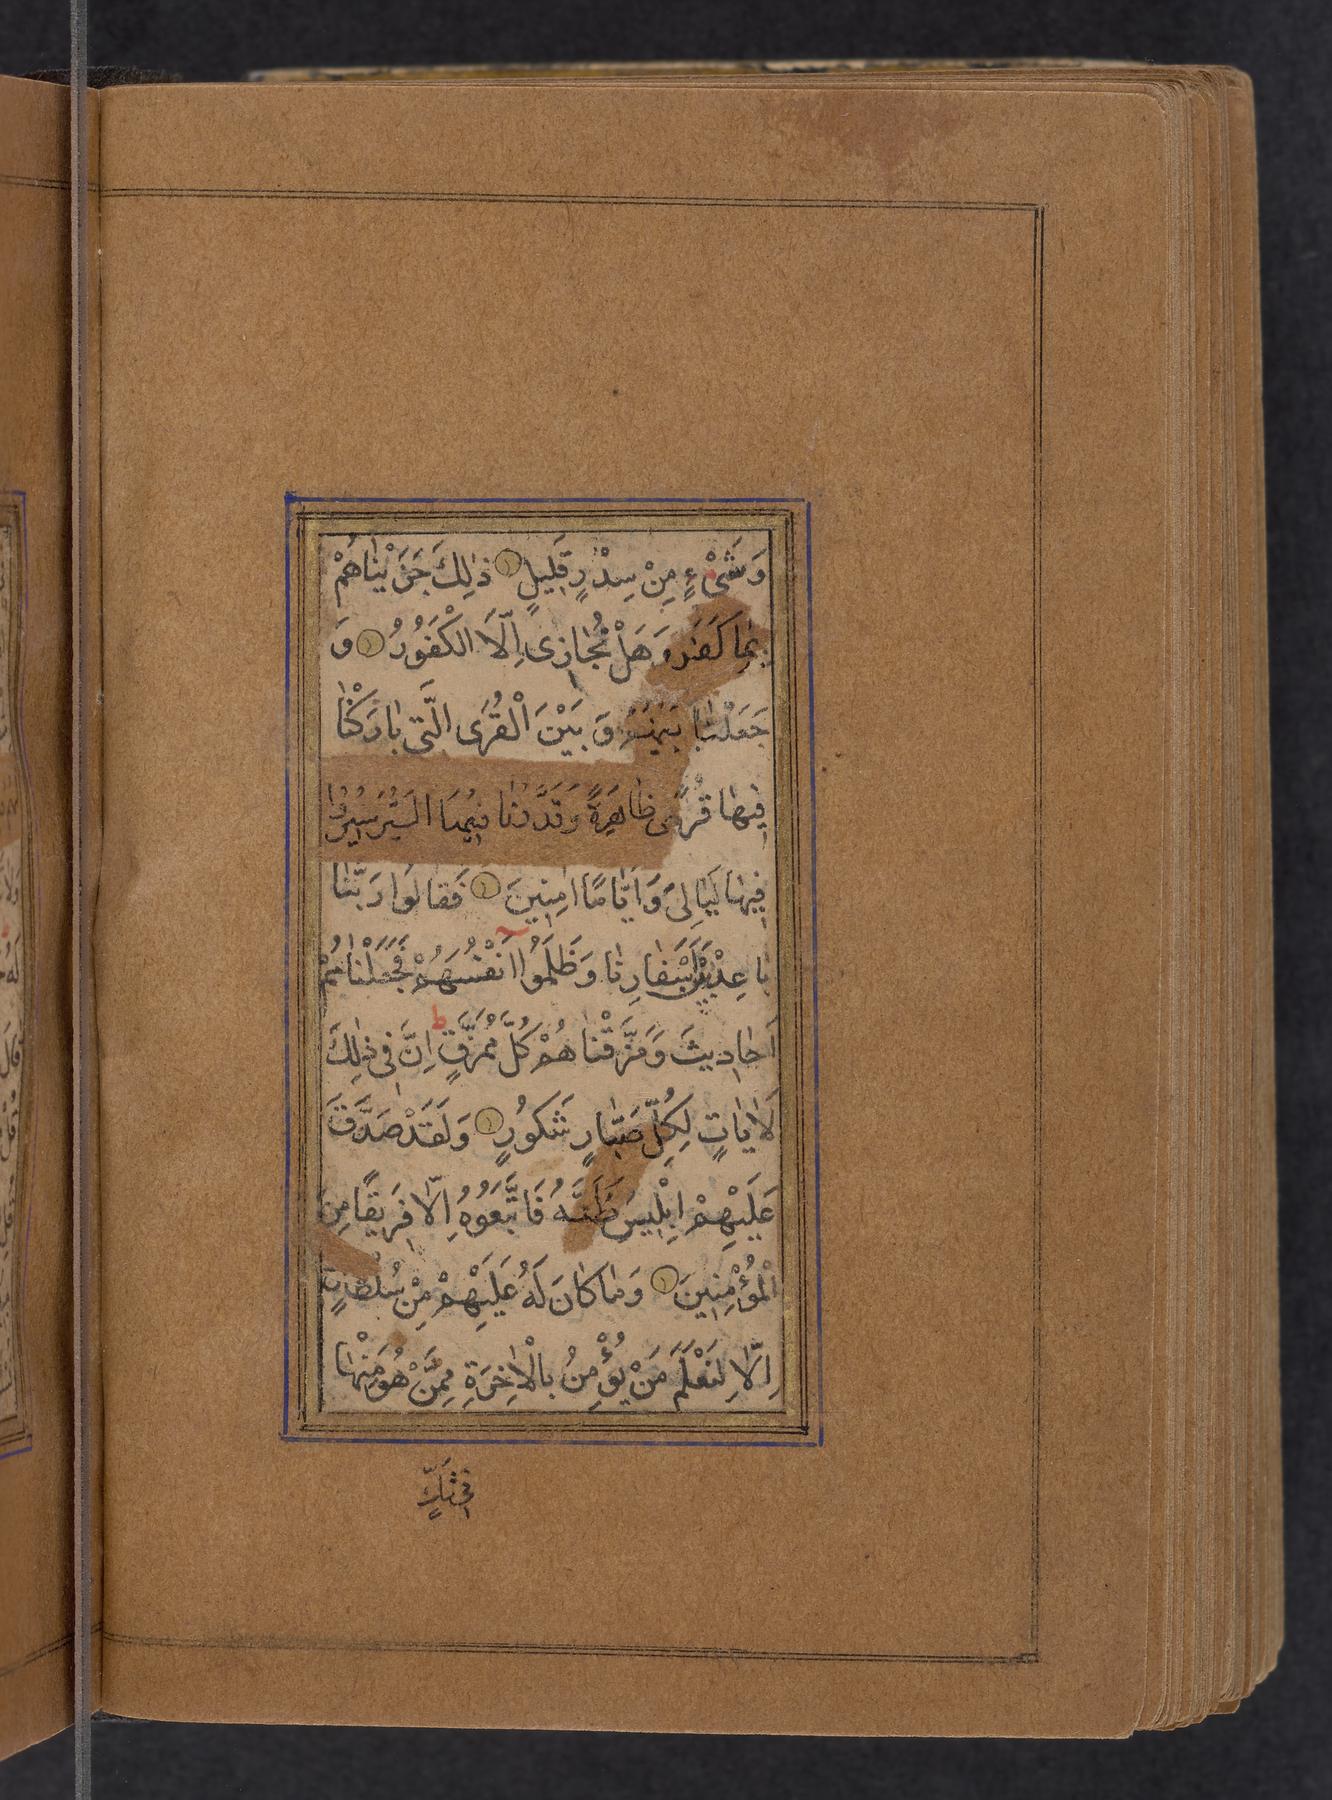 وَشَیْءٍ مِنْ سِدْرٍ قَلِیلٍ ذٰلِكَ جَزَیْنٰاهُمْ
بِمٰا كَفَرُوا وَهَلْ نُجٰازِی اِلَّا الْكَفُورُ وَ
جَعَلْنٰا بَیْنَهُمْ وَ بَیْنَ الْقُرَی الَّتِی بٰارَكْنٰا
فِیهٰا قُرًی ظٰاهِرَةً وَقَدَّرْنٰا فِیهَا السَّیْرَ سِیرُوا
فِیهٰا لَیٰالِیَ وَاَیّٰامًا اٰمِنِینَ فَقٰالُوا رَبَّنٰا
بٰاعِدْ بَیْنَ اَسْفٰارِنٰا وَظَلَمُوا اَنْفُسَهُمْ فَجَعَلْنٰاهُمْ
اَحٰادِیثَ وَمَزَّقْنٰاهُمْ كُلَّ مُمَزَّقٍ ط اِنَّ فِی ذٰلِكَ
لَاٰیٰاتٍ لِكُلِّ صَبّٰارٍ شَكُورٍ وَلَقَدْ صَدَّقَ
عَلَیْهِمْ اِبْلِیسُ ظَنَّهُ فَاتَّبَعُوهُ اِلّٰا فَرِیقًا مِنَ
الْمُؤْمِنِینَ وَمٰا كٰانَ لَهُ عَلَیْهِمْ مِنْ سُلْطٰانٍ
اِلّٰا لِنَعْلَمَ مَنْ یُؤْمِنُ بِالْاٰخِرَةِ مِمَّنْ هُوَ مِنْهٰا
فِی شَكٍّ